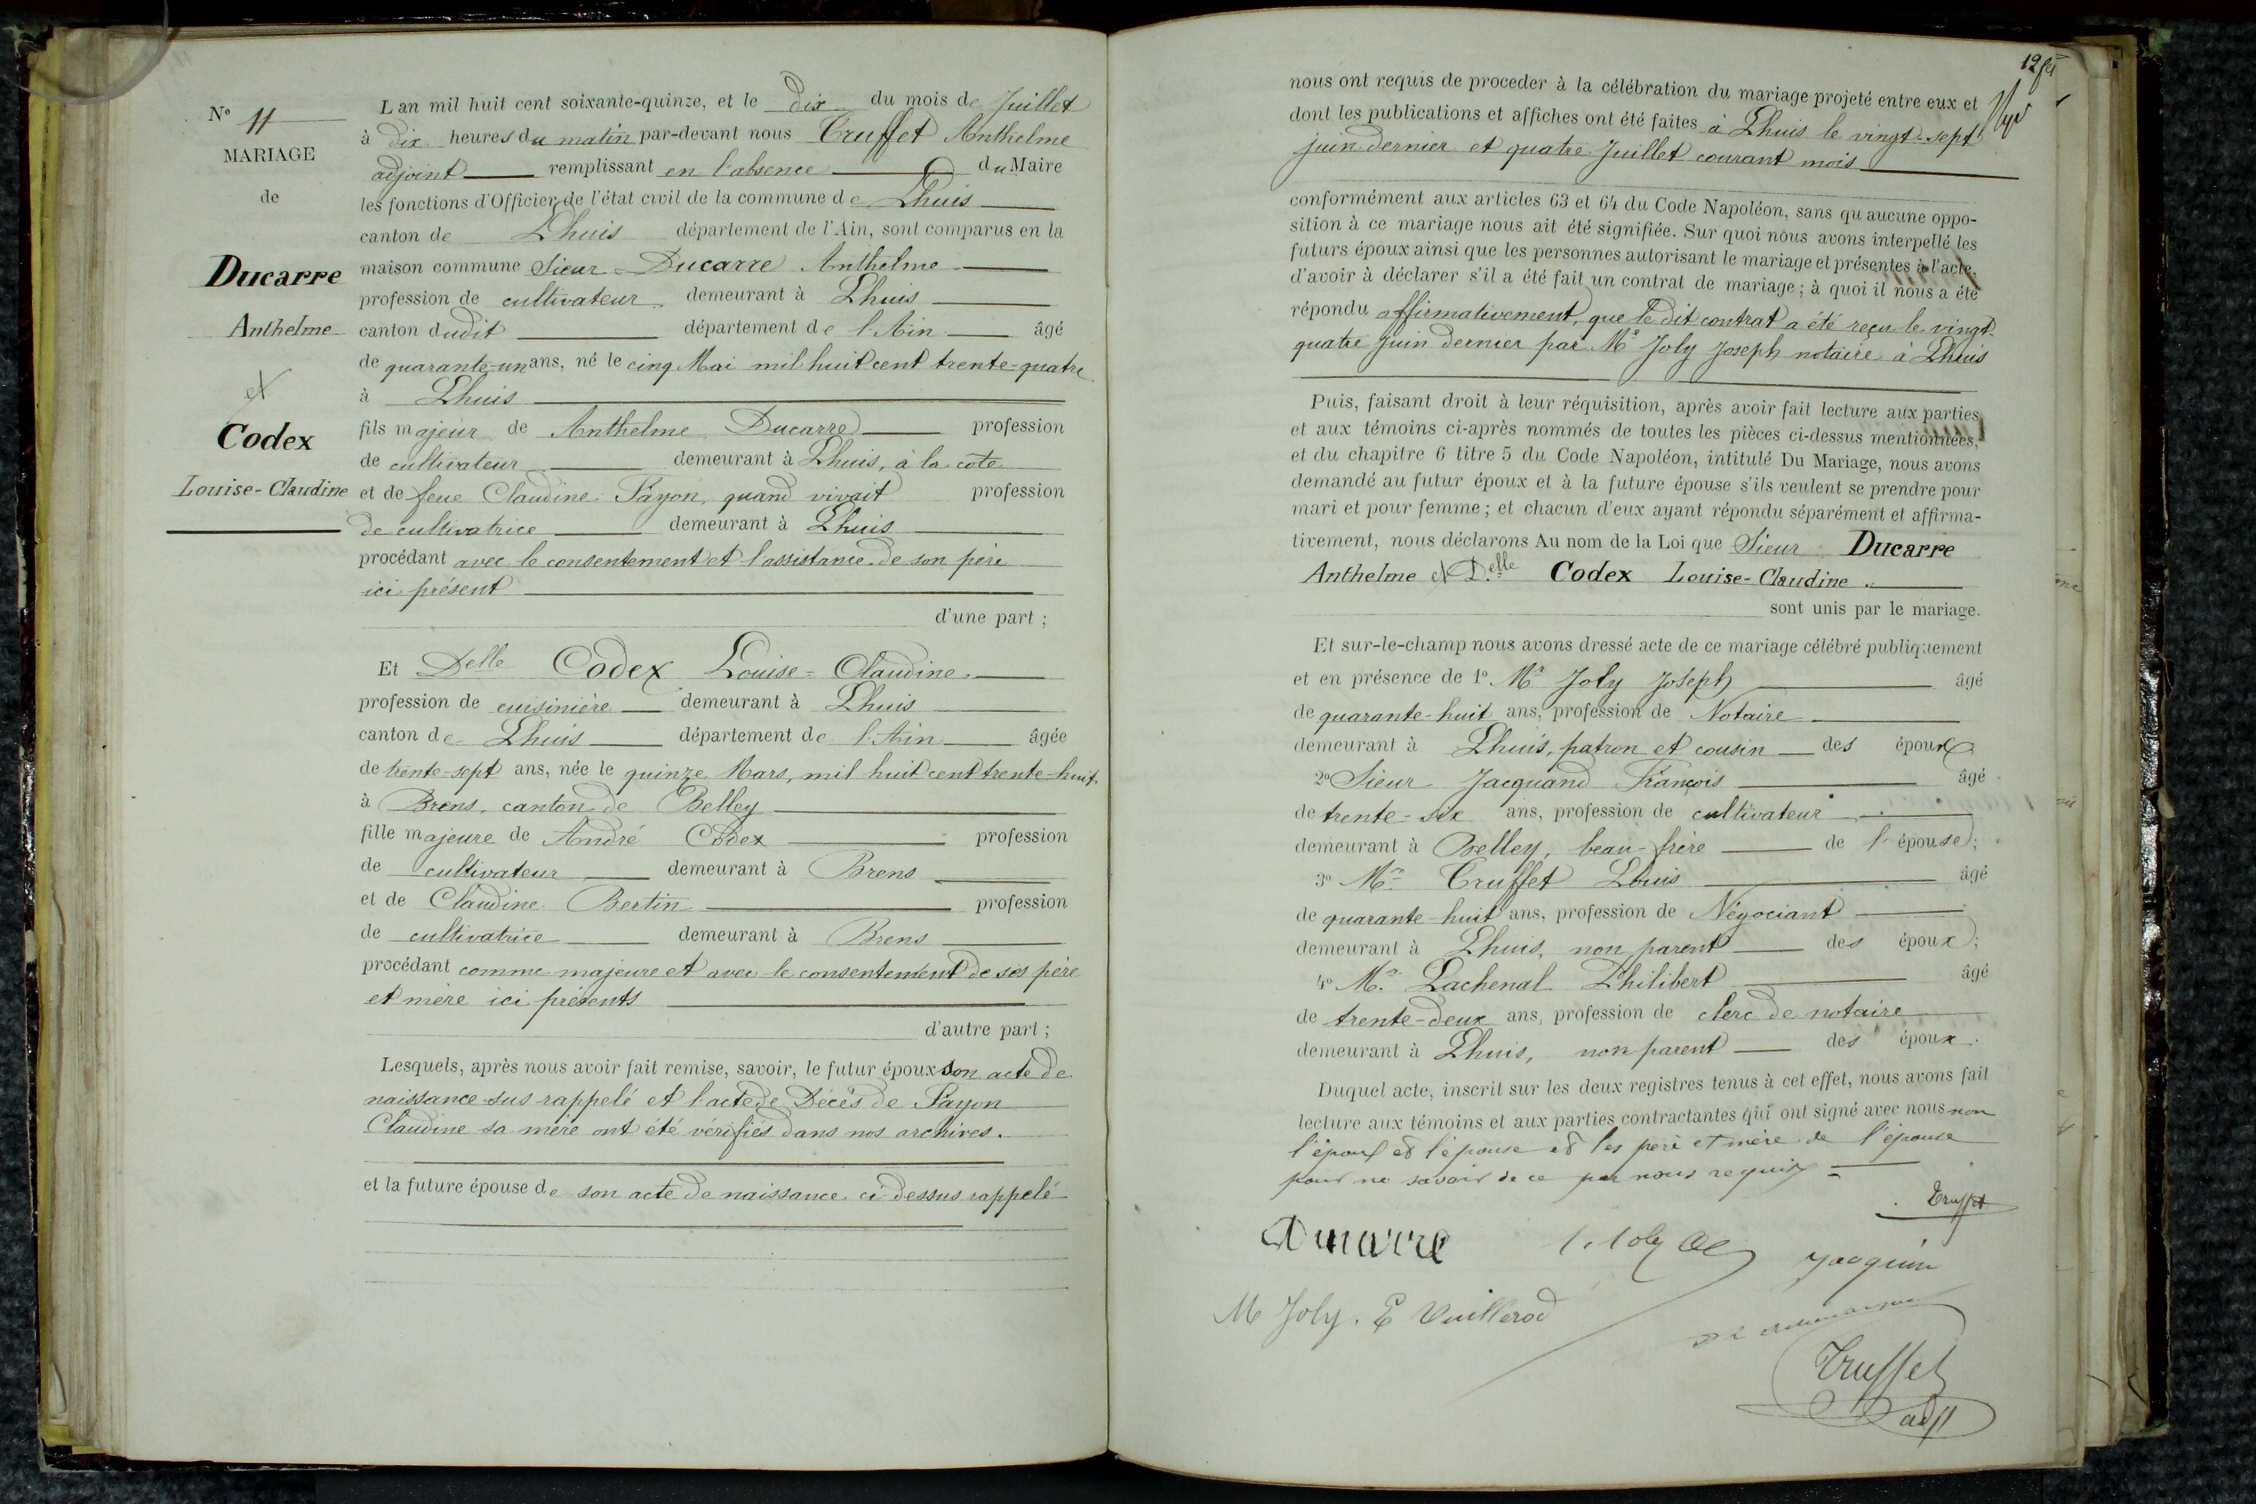 N° 11
MARIAGE
de
Ducarre
Anthelme
et
Codex
Louise-Claudine
L'an mil huit cent soixante-quinze, et le dix du mois de Juillet
à dix heures du matin par-devant nous Truffet Anthelme
adjoint remplissant en l'absence du Maire
les fonctions d'Officier de l'état civil de la commune de Lhuis
canton de Lhuis département de l'Ain, sont comparus en la
maison commune Sieur Ducarre Anthelme
profession de cultivateur demeurant à Lhuis
canton dudit département de l'Ain âgé
de quarante-un ans, né le cinq Mai mil huit cent trente-quatre
à Lhuis
fils majeur de Anthelme Ducarre profession
de cultivateur demeurant à Lhuis, à la cote
et de feue Claudine Payon, quand vivait profession
de cultivatrice demeurant à Lhuis
procédant avec le consentement et l'assistance de son père
ici présent
d'une part ;
Et Delle Codex Louise-Claudine
profession de cuisinière demeurant à Lhuis
canton de Lhuis département de l'Ain âgée
de trente-sept ans, née le quinze Mars, mil huit cent trente-huit,
à Brens, canton de Belley
fille majeure de André Codex profession
de cultivateur demeurant à Brens
et de Claudine Bertin profession
de cultivatrice demeurant à Brens
procédant comme majeure et avec le consentement de ses père
et mère ici présents
d'autre part ;
Lesquels, après nous avoir fait remise, savoir, le futur époux son acte de
naissance sus rappelé et l'acte de Décès de Payon
Claudine sa mère ont été vérifiés dans nos archives.
et la future épouse de son acte de naissance ci dessus rappelé
nous ont requis de proceder à la célébration du mariage projeté entre eux et
dont les publications et affiches ont été faites à Lhuis le vingt-sept
juin dernier et quatre Juillet courant mois
conformément aux articles 63 et 64 du Code Napoléon, sans qu'aucune oppo-
sition à ce mariage nous ait été signifiée. Sur quoi nous avons interpellé les
futurs époux ainsi que les personnes autorisant le mariage et présentes à l'acte,
d'avoir à déclarer s'il a été fait un contrat de mariage ; à quoi il nous a été
répondu affirmativement, que le dit contrat a été reçu le vingt-
quatre Juin dernier par Me Joly Joseph notaire à Lhuis
Puis, faisant droit à leur réquisition, après avoir fait lecture aux parties
et aux témoins ci-après nommés de toutes les pièces ci-dessus mentionnées,
et du chapitre 6 titre 5 du Code Napoléon, intitulé Du Mariage, nous avons
demandé au futur époux et à la future épouse s'ils veulent se prendre pour
mari et pour femme ; et chacun d'eux ayant répondu séparément et affirma-
tivement, nous déclarons Au nom de la Loi que Sieur Ducarre
Anthelme et Delle Codex Louise-Claudine
sont unis par le mariage.
Et sur-le-champ nous avons dressé acte de ce mariage célébré publiquement
et en présence de 1° Mr Joly Joseph âgé
de quarante-huit ans, profession de Notaire
demeurant à Lhuis, patron et cousin des époux
2° Sieur Jacquand François âgé
de trente-six ans, profession de cultivateur
demeurant à Belley, beau-frère de l'épouse ;
3° Mr Truffet Louis âgé
de quarante-huit ans, profession de Négociant
demeurant à Lhuis, non parent des époux ;
4° Mr Lachenal Philibert âgé
de trente-deux ans, profession de clerc de notaire
demeurant à Lhuis, non parent des époux.
Duquel acte, inscrit sur les deux registres tenus à cet effet, nous avons fait
lecture aux témoins et aux parties contractantes qui ont signé avec nous non
l'époux et l'épouse et les père et mère de l'épouse
pour ne savoir de ce par nous requis
Truffet
Ducarre
M Joly. E Vuillerod
Truffet
adjt